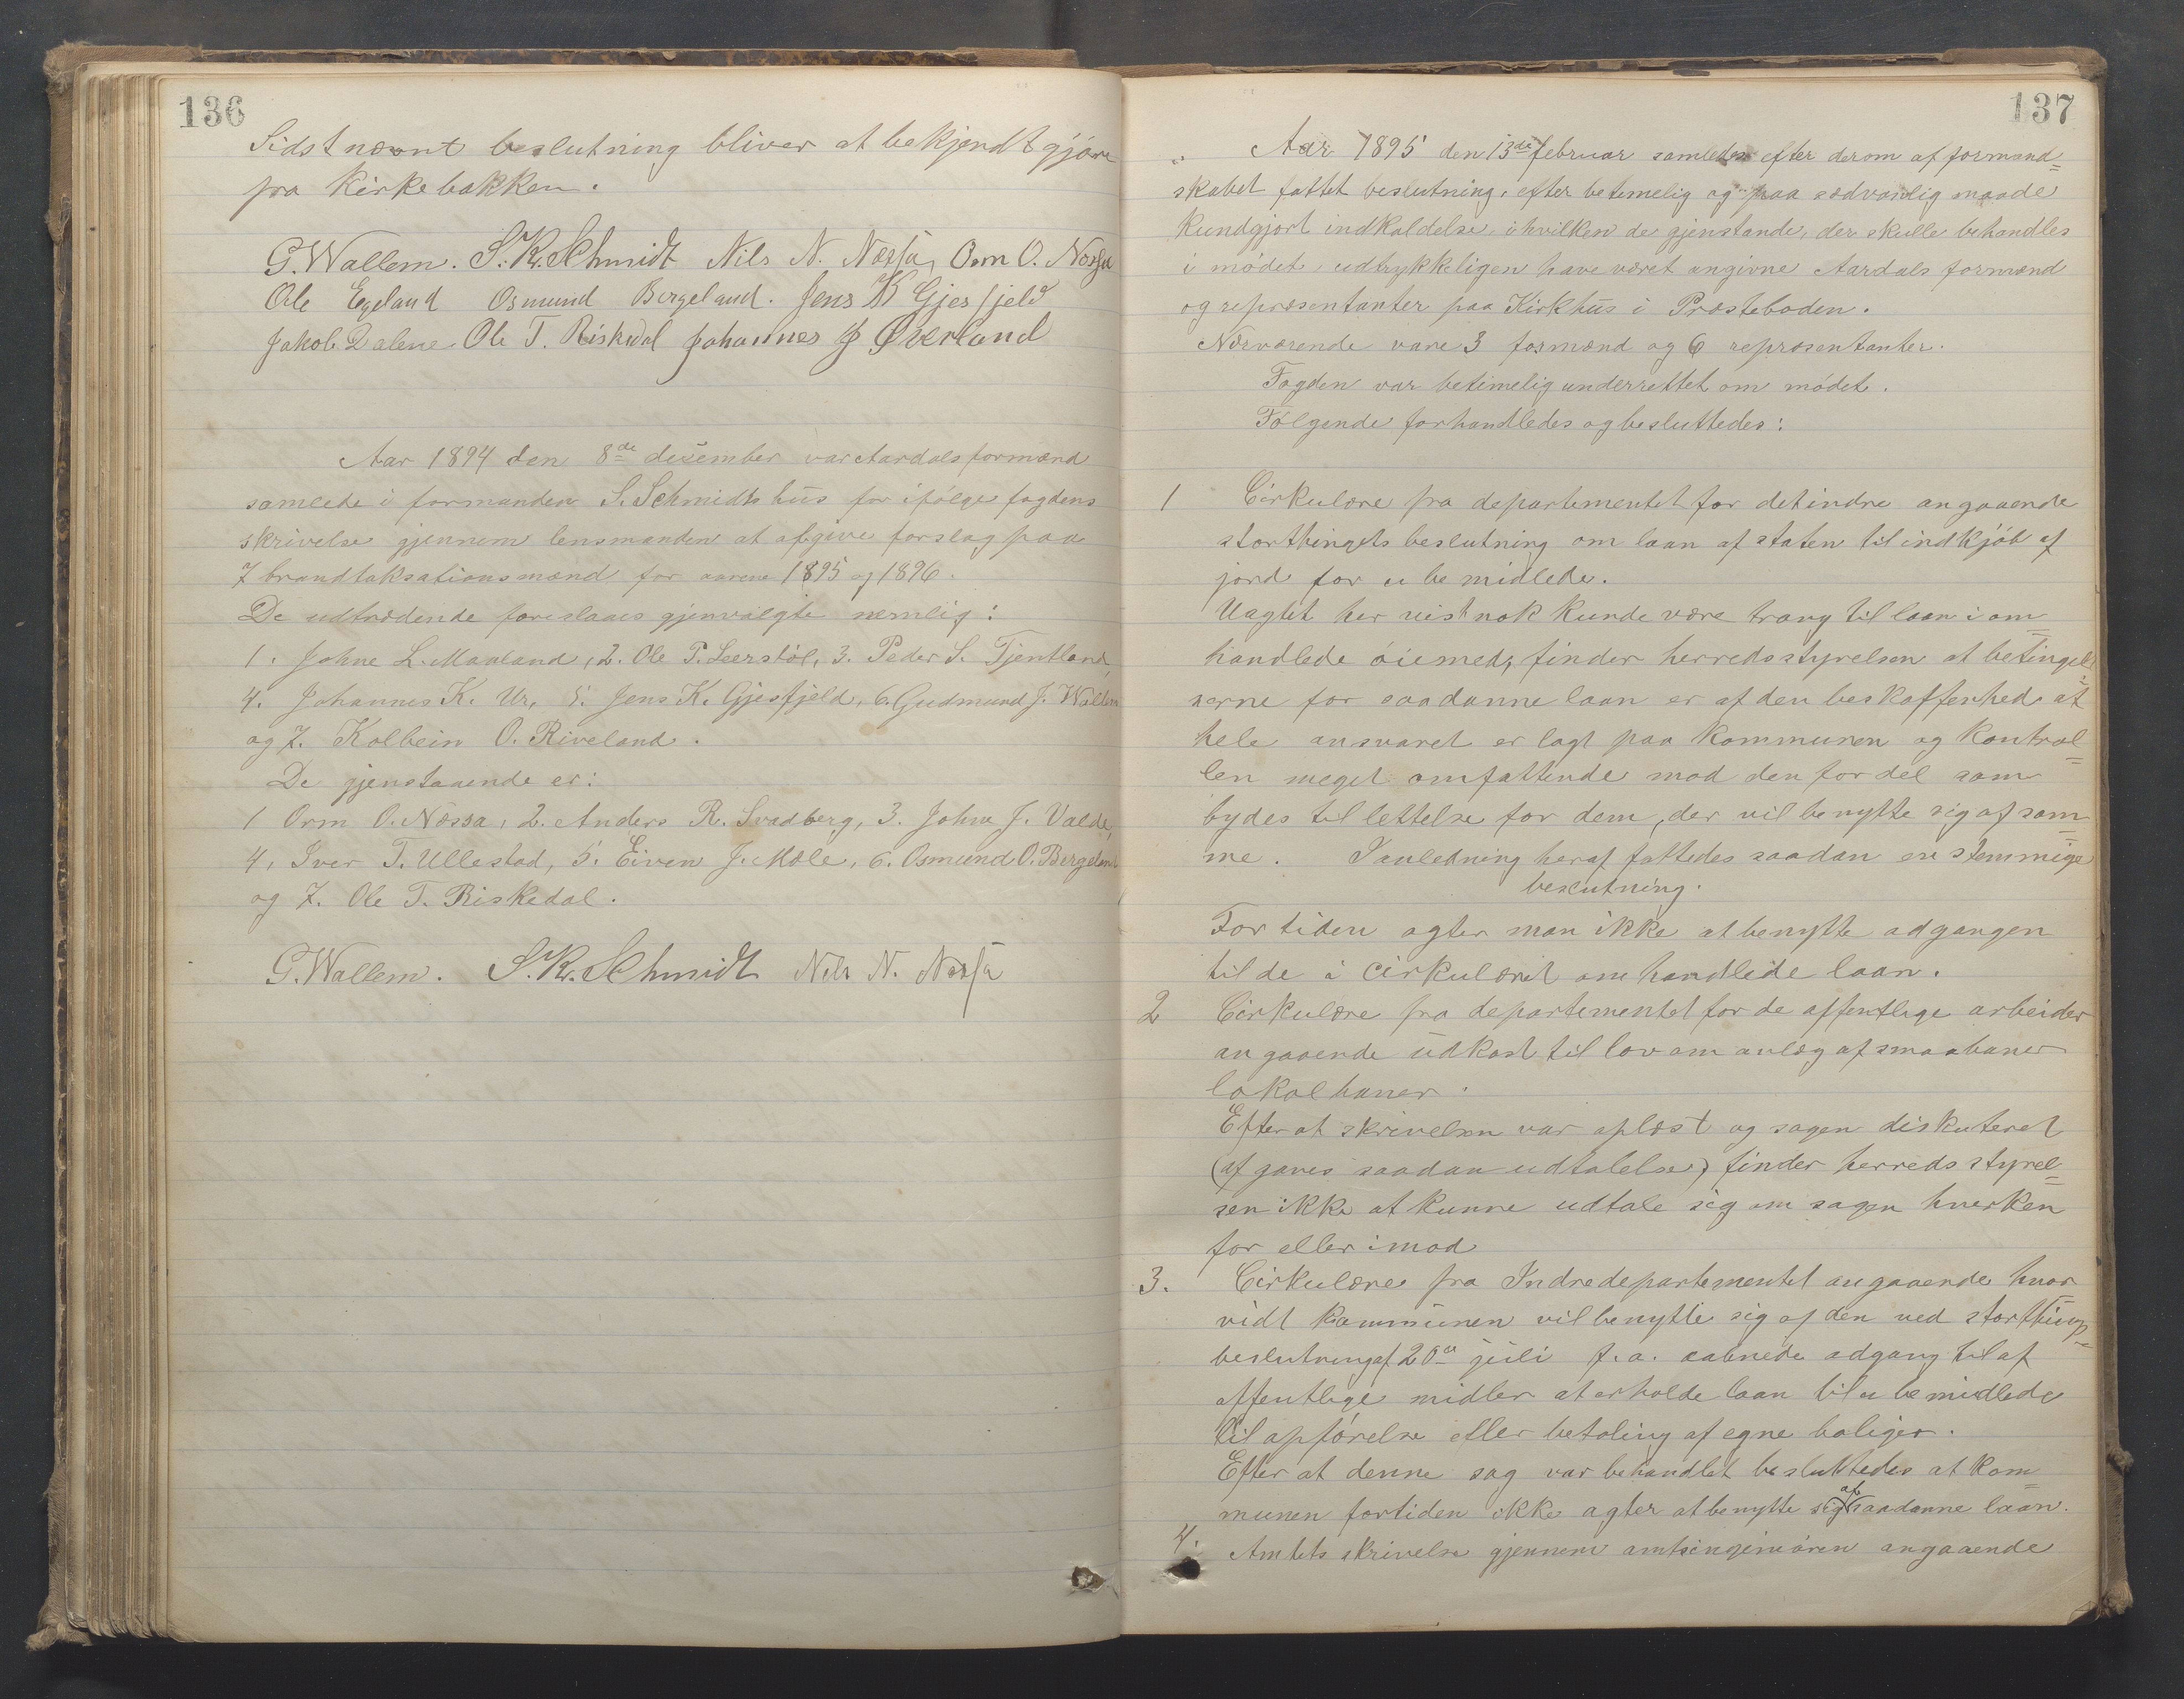 136
Sidst nævnt beslutning bliver at bekjendtgjøre
fra Kirkebakken.
G. Wallem. S. K. Schmidt Nils N. Næssa, Orm O. Næssa
Ole Egeland Osmund Bergeland. Jens K Gjesfjeld
Jakob Dalene Ole T. Riskedal Johannes J Øverland
Aar 1894 den 8de desember var Aardals formænd
samlede i formanden S. Schmidts hus for ifølge fogdens
skrivelse gjennem lensmanden at afgive forslag paa
7 brandtaksationsmænd for aarene 1895 og 1896.
De udtrædende foreslaaes gjenvalgte nemlig:
1. Johne L. Mæland, 2. Ole P. Leerstøl, 3. Peder S. Tjentland,
4. Johannes K. Ur, 5. Jens K. Gjesfjeld, 6. Gudmund J. Wallem
og 7. Kolbein O. Riveland.
De gjenstaaende er:
1 Orm O. Næssa, 2. Anders R. Svadberg, 3. Johne J. Valde,
4, Iver T. Ullestad, 5. Eiven J. Mæle, 6. Osmund O. Bergeland
og 7. Ole T. Riskedal.
G. Wallem. S. K. Schmidt Nils N. Næssa
137
Aar 1895 den 13de februar samledes efter derom af formand=
skabet fattet beslutning, efter betimelig og paa sædvanlig maade
kundgjort indkaldelse, i hvilken de gjenstande, der skulle behandles
i mødet udtrykkeligen have været angivne Aardals formænd
og repræsentanter paa Kirkhus i Præsteboden.
Nærværende vare 3 formænd og 6 repræsentanter.
Fogden var betimelig underrettet om mødet.
Følgende forhandledes og besluttedes:
1 Cirkulære fra departementet for det indre angaaende
storthingets beslutning om laan af staten til indkjøb af
jord for ubemidlede.
Uagtet her vistnok kunde være trang til laan i om=
handlede øiemed, finder herredsstyrelsen at betingel=
serne for saadanne laan er af den beskaffenhed at
hele ansvaret er lagt paa kommunen og kontrol=
len meget omfattende mod den fordel som
bydes til lettelse for dem, der vil benytte sig af sam=
me. I anledning heraf fattedes saadan en stemmige
beslutning.
For tiden agter man ikke at benytte adgangen
til de i cirkulæret omhandlede laan.
2 Cirkulære fra departementet for de offentlige arbeider
angaaende udkast til lov om anlæg af smaabaner
lokalbaner.
Efter at skrivelsen var oplæst og sagen diskuteret
(afgaves saadan udtalelse) finder herredsstyrel=
sen ikke at kunne udtale sig om sagen hverken
for eller imod
3. Cirkulære fra Indredepartementet angaaende hvor=
vidt kommunen vil benytte sig af den ved storthings=
beslutning af 20de juli f. a. aabnede adgang til af
offentlige midler at erholde laan til ubemidlede
til opførelse eller betaling af egne boliger.
Efter at denne sag var behandlet besluttedes at kom=
munen fortiden ikke agter at benytte sig af saadanne laan.
4. Amtets skrivelse gjennem amtsingeniøren angaaende